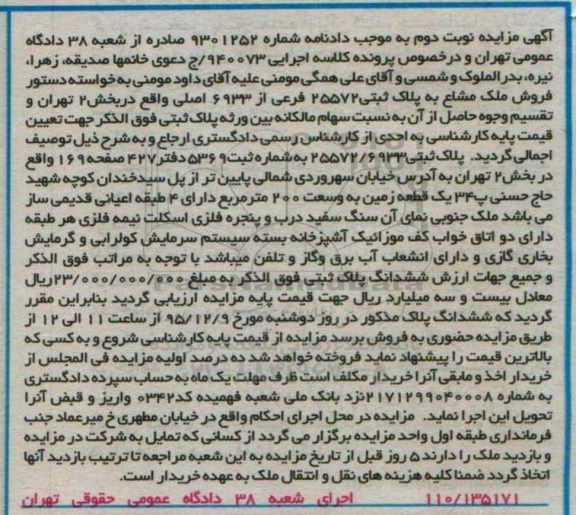 آگهی مزایده نوبت دوم به موجب دادنامه شماره ۹۳۰۱۲۵۲ صادره از شعبه ۳۸ دادگاه
عمومی تهران و درخصوص پرونده کلاسه اجرایی ۹۴۰۰۷۳/ج دعوی خانمها صدیقه، زهرا،
نیره، بدرالملوک و شمسی و آقای علی همگی مومنی علیه آقای داود مومنی به خواسته دستور
فروش ملک مشاع به پلاک ثبتی ۲۵۵۷۲ فرعی از ۶۹۳۳ اصلی واقع دربخش ۲ تهران و
تقسیم وجوه حاصل از آن به نسبت سهام مالکانه بین ورثه پلاک ثبتی فوق الذکر جهت تعیین
قیمت پایه کارشناسی به احدی از کارشناس رسمی دادگستری ارجاع و به شرح ذیل توصیف
اجمالی گردید. پلاک ثبتی ۲۵۵۷۲/۶۹۳۳ به شماره ثبت ۵۳۶۹ دفتر ۴۲۷ صفحه ۱۶۹ واقع
در بخش ۲ تهران به آدرس خیابان سهروردی شمالی پایین تر از پل سیدخندان کوچه شهید
حاج حسنی پ۳۴ یک قطعه زمین به وسعت ۲۰۰ مترمربع دارای ۴ طبقه اعیانی قدیمی ساز
می باشد ملک جنوبی نمای آن سنگ سفید درب و پنجره فلزی اسکلت نیمه فلزی هر طبقه
دارای دو اتاق خواب کف موزائیک آشپزخانه بسته سیستم سرمایش کولرابی و گرمایش
بخاری گازی و دارای انشعاب آب برق وگاز و تلفن میباشد با توجه به مراتب فوق الذکر
و جمیع جهات ارزش ششدانگ پلاک ثبتی فوق الذکر به مبلغ ۲۳/۰۰۰/۰۰۰/۰۰۰ ریال
معادل بیست و سه میلیارد ریال جهت قیمت پایه مزایده ارزیابی گردید بنابراین مقرر
گردید که ششدانگ پلاک مذکور در روز دوشنبه مورخ ۹۵/۱۲/۹ از ساعت ۱۱ الی ۱۲ از
طریق مزایده حضوری به فروش برسد مزایده از قیمت پایه کارشناسی شروع و به کسی که
بالاترین قیمت را پیشنهاد نماید فروخته خواهد شد ده درصد اولیه مزایده فی المجلس از
خریدار اخذ و مابقی آنرا خریدار مکلف است ظرف مهلت یک ماه به حساب سپرده دادگستری
به شماره ۲۱۷۱۲۹۹۰۴۰۰۰۸ نزد بانک ملی شعبه فهمیده کد ۰۳۴۲ واریز و قبض آنرا
تحویل این اجرا نماید. مزایده در محل اجرای احکام واقع در خیابان مطهری خ میرعماد جنب
فرمانداری طبقه اول واحد مزایده برگزار می گردد از کسانی که تمایل به شرکت در مزایده
و بازدید ملک را دارند ۵ روز قبل از تاریخ مزایده به این شعبه مراجعه تا ترتیب بازدید آنها
اتخاذ گردد ضمنا کلیه هزینه های نقل و انتقال ملک به عهده خریدار است.
۱۱۰/۱۳۵۱۷۱ اجرای شعبه ۳۸ دادگاه عمومی حقوقی تهران